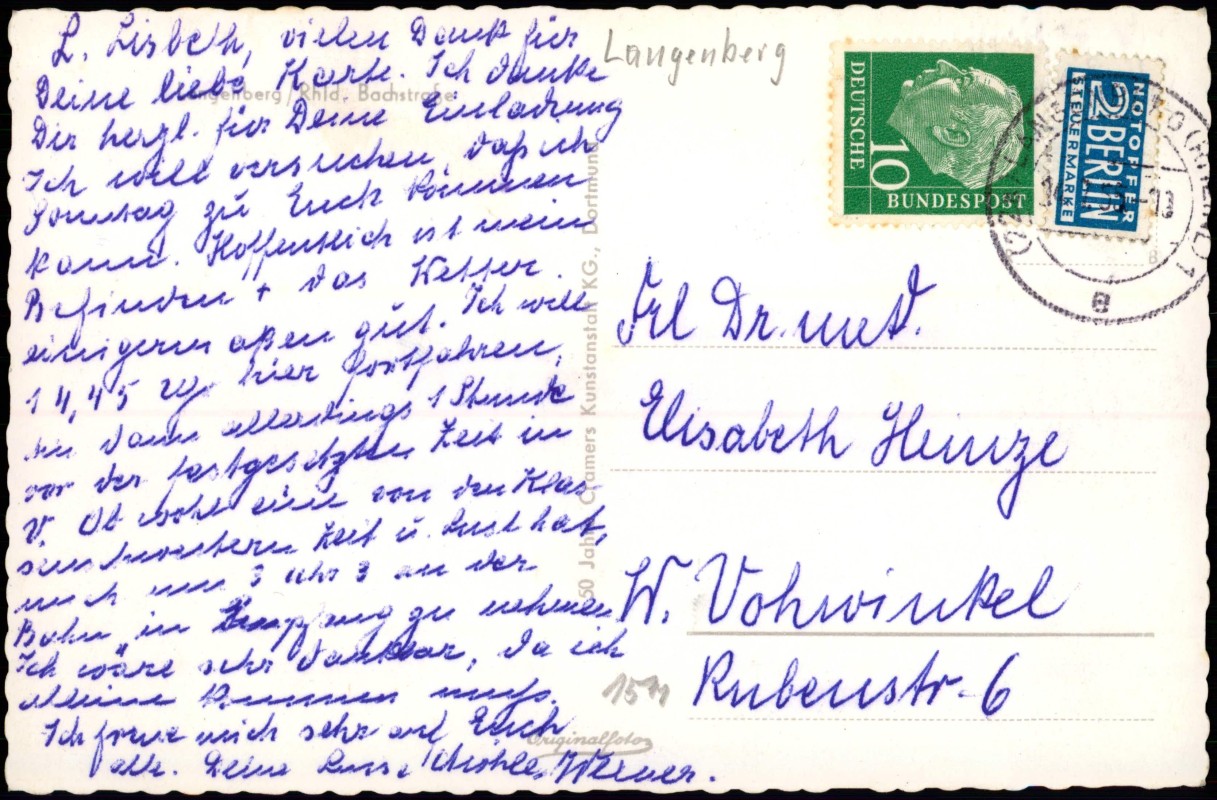 L. Lisbeth, vielen Dank für
Deine liebe Karte. Ich danke
Dir herzl. für Deine Einladung
Ich will versuchen, daß ich
Sonntag zu Euch kommen
kann. Hoffentlich ist mein
Befinden + das Wetter
einigermaßen gut. Ich will
14,45 hier fortfahren,
bin dann allerdings 1 Stunde
vor der festgesetzten Zeit in
V. Ob wohl eine von den Klas
senschwestern Zeit u. Lust hat,
mich um 3 Uhr 3 an der
Bahn in Empfang zu nehmen
Ich wäre sehr dankbar, da ich
alleine kommen muß.
Ich freue mich sehr auf Euch
alle. Deine Luise
Langenberg/Rhld. Bachstraße
50 Jahre Cramers Kunstanstalt KG., Dortmund
Originalfoto
Langenberg
DEUTSCHE
10
BUNDESPOST
NOTOPFER
2 BERLIN
STEUERMARKE
Frl Dr. med.
Elisabeth Heinze
W. Vohwinkel
Rubenstr. 6